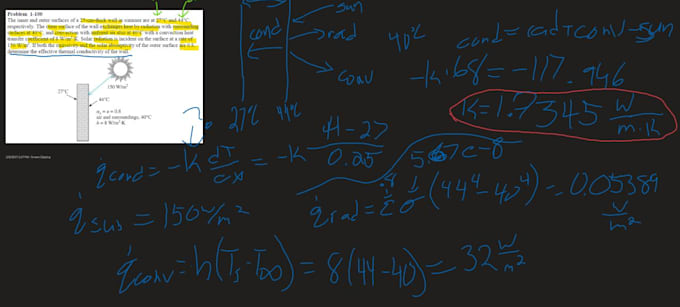 Problem 1-100
The inner and outer surfaces of a 25-cm-thick wall in summer are at 27°C and 44°C,
respectively. The outer surface of the wall exchanges heat by radiation with surrounding
surfaces at 40°C, and convection with ambient air also at 40°C with a convection heat
transfer coefficient of 8 W/m²·K. Solar radiation is incident on the surface at a rate of
150 W/m². If both the emissivity and the solar absorptivity of the outer surface are 0.8,
determine the effective thermal conductivity of the wall.
150 W/m²
27°C
44°C
αs = ε = 0.8
air and surroundings, 40°C
h = 8 W/m²·K
cond
sun
rad
conv
40°C
27°C 44°C
cond = rad + conv - sun
-k·68 = -117.946
k = 1.7345 W/m·K
q̇cond = -k dT/dx = -k (44 - 27)/0.25
5.67e-8
q̇sun = 150 W/m²
q̇rad = .8 ε σ (44⁴ - 40⁴) = 0.05389 W/m²
q̇conv = h(Ts - T∞) = 8(44 - 40) = 32 W/m²